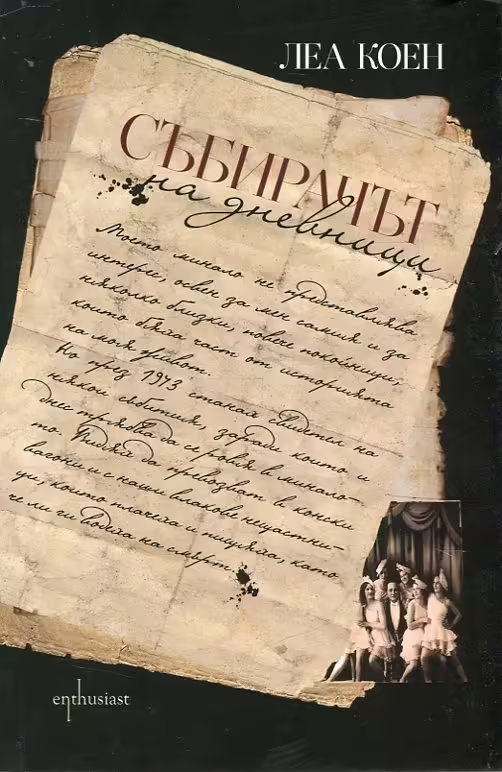 ЛЕА КОЕН
СЪБИРАЧЪТ
на дневници
Моето минало не представлява
интерес, освен за мен самия и за
няколко близки, повече покойници,
които бяха част от историята
на моя живот.
Но през 1943 станах свидетел на
някои събития, заради които и
днес трябва да се ровя в минало-
то. Видях да превозват в конски
вагони и с наши влакове нещастни-
ци, които плачеха и пищяха, като
че ли ги водеха на смърт.
enthusiast